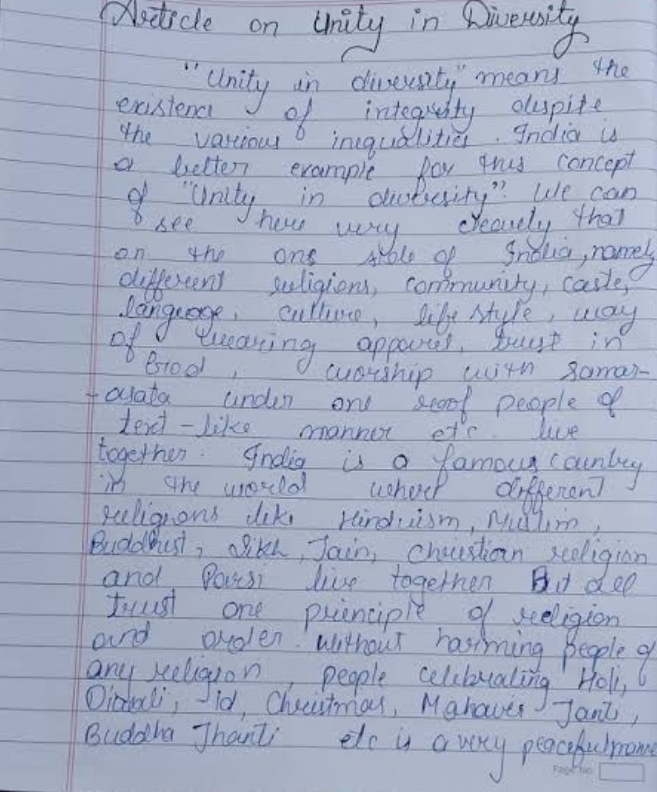 Article on Unity in Diversity
"Unity in diversity" means the
existence of integrity despite
the various inequalities. India is
a better example for this concept
of "Unity in diversity". We can
see here very clearly that
on the one side of India, namely
different religions, community, caste,
language, culture, life style, way
of wearing apparel, trust in
God, worship with samar-
-asata under one roof people of
text-like manner etc live
together. India is a famous country
in the world where different
religions like Hinduism, Muslim,
Buddhist, Sikh, Jain, Christian religion
and Parsi live together But all
trust one principle of religion
and order without harming people of
any religion, people celebrating Holi,
Diwali, Id, Christmas, Mahaver Janti,
Buddha Jhanti etc is a very peaceful
Page No.